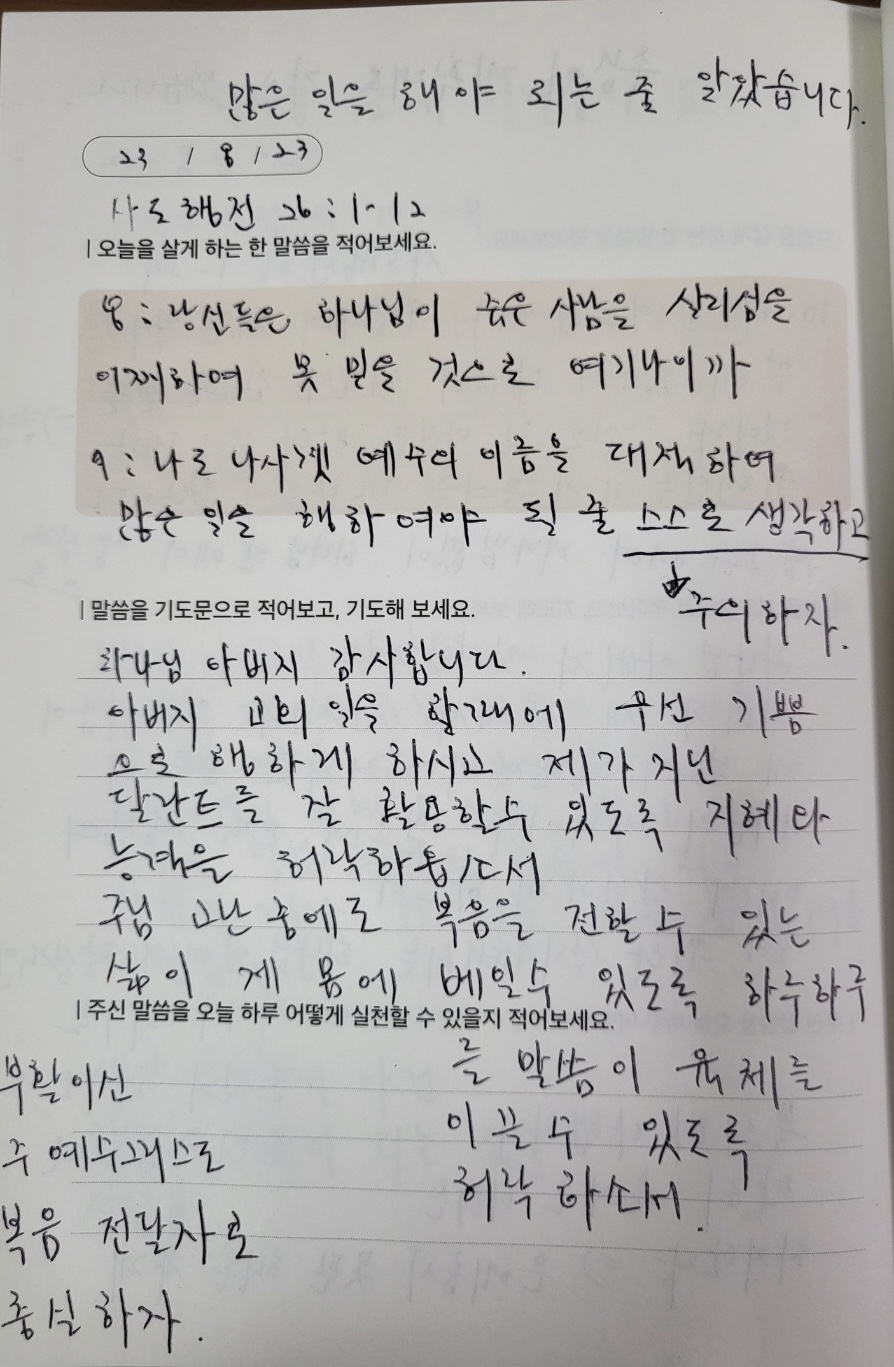 많은 일을 해야 되는 줄 알았습니다.
23 / 8 / 23
사도행전 26:1~12
| 오늘을 살게 하는 한 말씀을 적어보세요.
8: 당신들은 하나님이 죽은 사람을 살리심을
어찌하여 못 믿을 것으로 여기나이까
9: 나도 나사렛 예수의 이름을 대적하여
많은 일을 행하여야 될 줄 스스로 생각하고
주의하자.
| 말씀을 기도문으로 적어보고, 기도해 보세요.
하나님 아버지 감사합니다.
아버지 교회 일을 할때에 우선 기쁨
으로 행하게 하시고 제가 지닌
달란트를 잘 활용할수 있도록 지혜와
능력을 허락하옵소서
주님 고난 중에도 복음을 전할 수 있는
삶이 제 몸에 베일수 있도록 하루하루
| 주신 말씀을 오늘 하루 어떻게 실천할 수 있을지 적어보세요.
를 말씀이 육체를
이끌 수 있도록
허락 하소서.
부활이신
주 예수그리스도
복음 전달자로
충실하자.